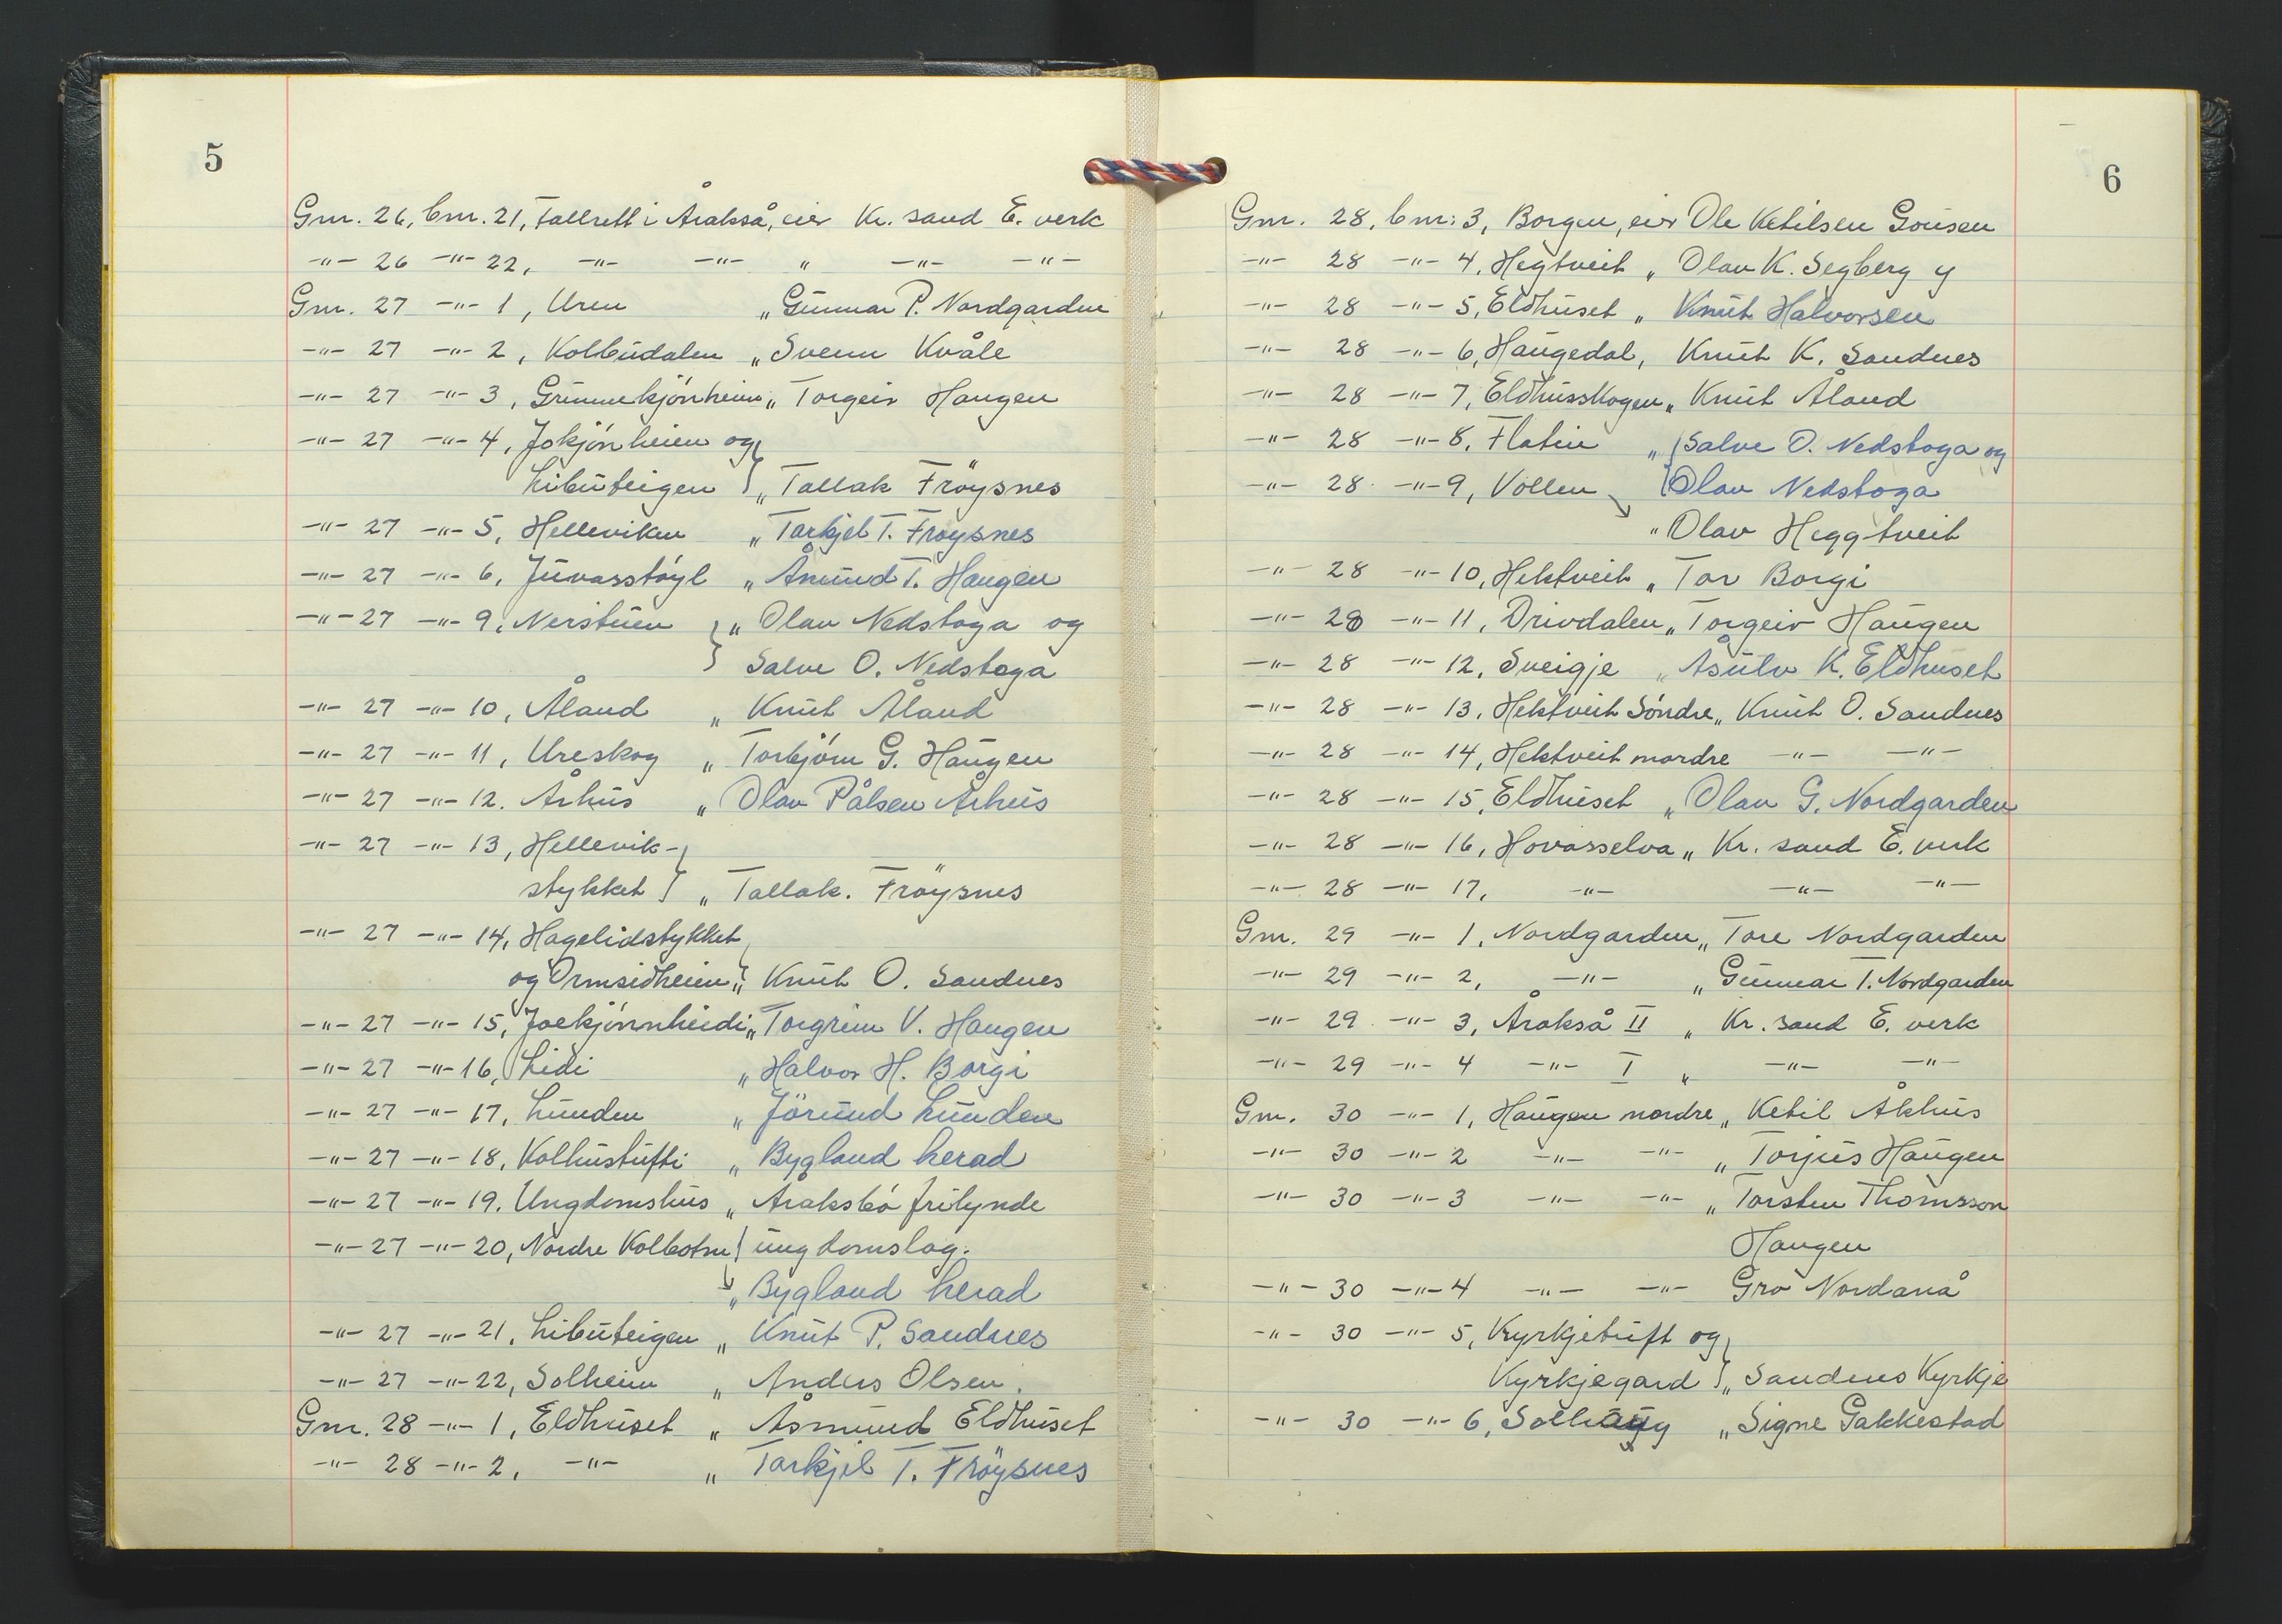 5
Gnr. 26, bnr. 21, Fallrett i Årakså, eier Kr. sand E. verk
-"- 26 -"- 22, -"- -"- " -"- -"-
Gnr. 27 -"- 1, Uren " Gunnar P. Nordgarden
-"- 27 -"- 2, Kolbudalen " Svenn Kvåle
-"- 27 -"- 3, Grunnekjönheim " Torgeir Haugen
-"- 27 -"- 4, Jokjönheien og
Libuteigen " Tallak Fröysnes
-"- 27 -"- 5, Helleviken " Tarkjel T. Fröysnes
-"- 27 -"- 6, Juvasstöyl " Åmund T. Haugen
-"- 27 -"- 9, Nerstuen " Olav Nedstoga og
Salve O. Nedstoga
-"- 27 -"- 10, Åland " Knut Åland
-"- 27 -"- 11, Ureskog " Torbjörn G. Haugen
-"- 27 -"- 12. Århus " Olav Pålsen Århus
-"- 27 -"- 13, Hellevik-
stykket " Tallak. Fröysnes
-"- 27 -"- 14, Hagelidstykket
og Ormsidheien " Knut O. Sandnes
-"- 27 -"- 15, Joekjönnheidi " Torgrim V. Haugen
-"- 27 -"- 16, Lidi " Halvor H. Borgi
-"- 27 -"- 17, Lunden " Jörund Lunden
-"- 27 -"- 18, Kolhustufti " Bygland herad
-"- 27 -"- 19. Ungdomshus " Åraksbö frilynde
-"- 27 -"- 20, Nordre Kolbotn ungdomslag.
" Bygland herad
-"- 27 -"- 21, Libuteigen " Knut P. Sandnes
-"- 27 -"- 22, Solheim " Anders Olsen.
Gnr. 28 -"- 1, Eldhuset " Åsmund Eldhuset
-"- 28 -"- 2, -"- " Tarkjel T. Fröysnes
6
Gnr. 28, bnr. 3, Borgen, eier Ole Ketilsen Gousen
-"- 28 -"- 4, Hegtveit " Olav K. Segberg y
-"- 28 -"- 5, Eldhuset " Knut Halvorsen
-"- 28 -"- 6, Haugedal, Knut K. Sandnes
-"- 28 -"- 7, Eldhusskogen " Knut Åland
-"- 28 -"- 8, Flatin " Salve O. Nedstoga og
-"- 28 -"- 9, Vollen Olav Nedstoga
" Olav Heggtveit
-"- 28 -"- 10, Hektveit " Tor Borgi
-"- 28 -"- 11, Drivdalen " Torgeir Haugen
-"- 28 -"- 12, Sveigje " Åsulv K. Eldhuset
-"- 28 -"- 13, Hektveit Söndre " Knut O. Sandnes
-"- 28 -"- 14, Hektveit nordre -"- -"-
-"- 28 -"- 15, Eldhuset " Olav G. Nordgarden
-"- 28 -"- 16, Hovasselva " Kr. sand E. verk
-"- 28 -"- 17, -"- -"- -"-
Gnr. 29 -"- 1, Nordgarden " Tore Nordgarden
-"- 29 -"- 2, -"- " Gunnar T. Nordgarden
-"- 29 -"- 3, Årakså II " Kr. sand E. verk
-"- 29 -"- 4 -"- I " -"- -"-
Gnr. 30 -"- 1, Haugen nordre " Ketil Åkhus
-"- 30 -"- 2 -"- -"- " Torjus Haugen
-"- 30 -"- 3 -"- -"- " Torsten Thomsson
Haugen
-"- 30 -"- 4 -"- -"- Gro Nordanå
-"- 30 -"- 5, Kyrkjetuft og
Kyrkjegard " Sandnes Kyrkje
-"- 30 -"- 6, Solhaug " Signe Gakkestad